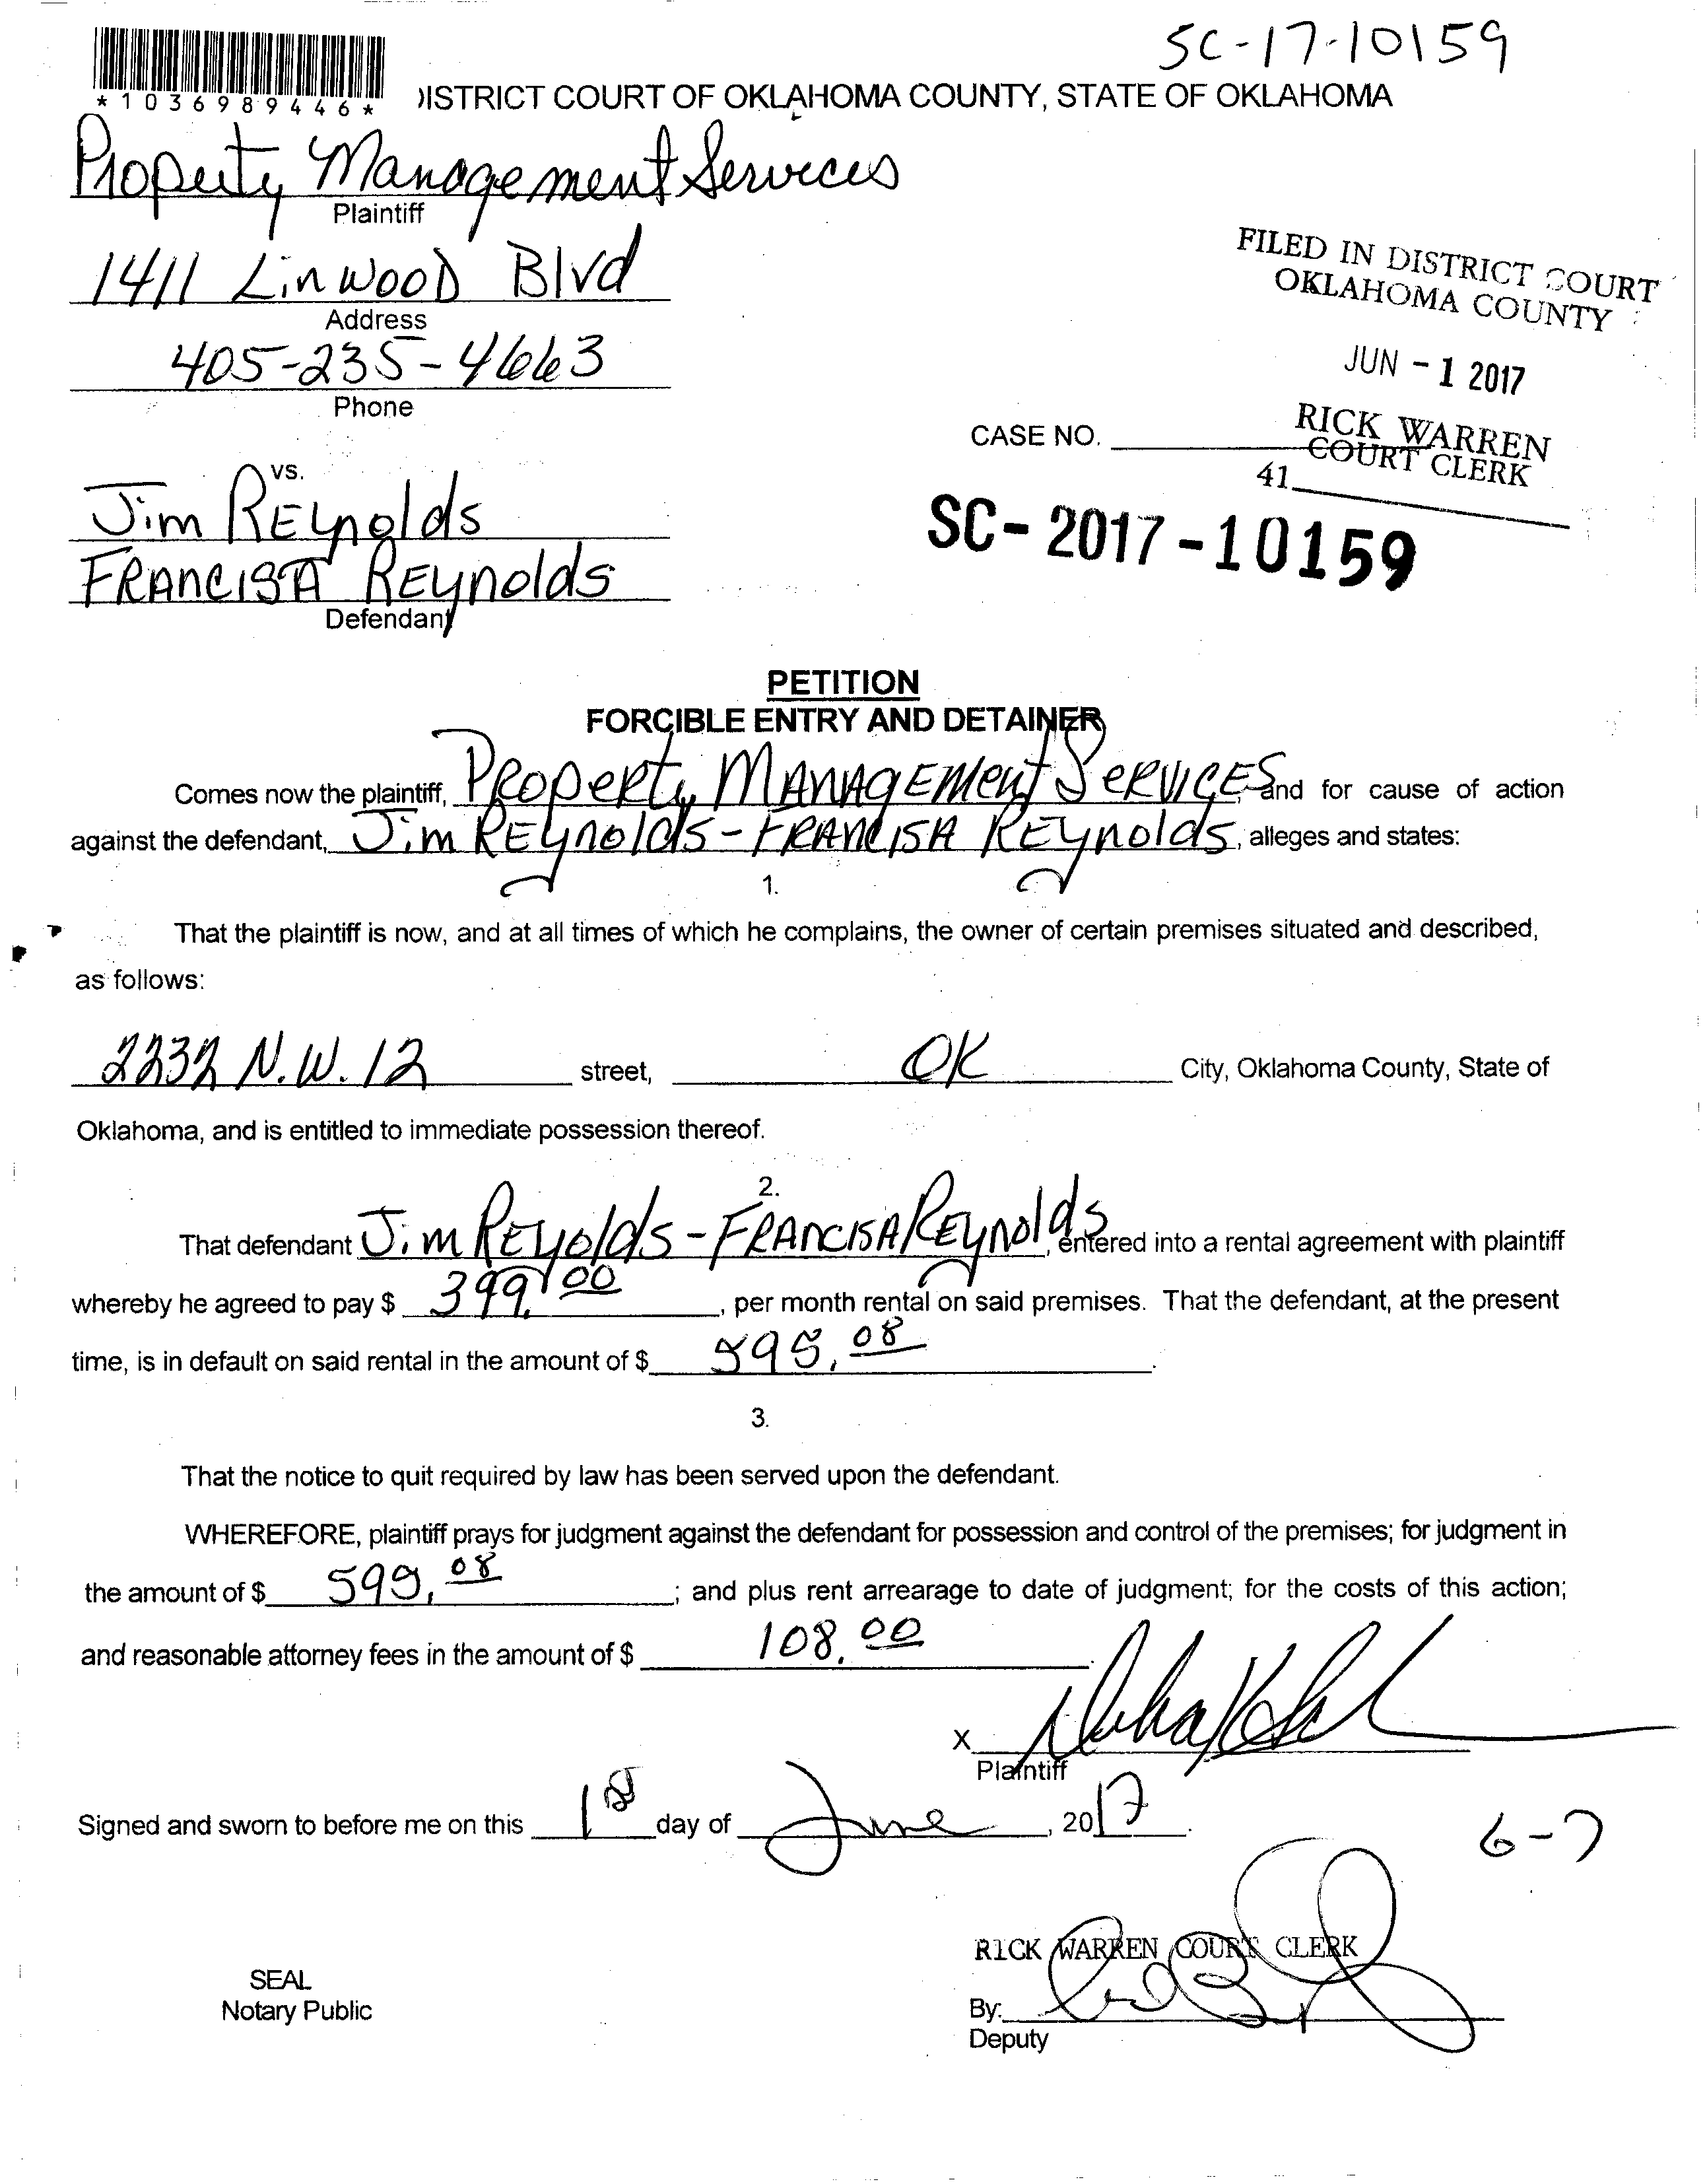 SC-17-10159
*1036989446*
DISTRICT COURT OF OKLAHOMA COUNTY, STATE OF OKLAHOMA
Property Management Services
Plaintiff
1411 Linwood Blvd
Address
405-235-4663
Phone
FILED IN DISTRICT COURT
OKLAHOMA COUNTY
JUN - 1 2017
RICK WARREN
COURT CLERK
41
CASE NO.
SC-2017-10159
vs.
Jim REynolds
FRANCISA REynolds
Defendant
PETITION
FORCIBLE ENTRY AND DETAINER
Comes now the plaintiff, Property MANAgEMent SeRVICES, and for cause of action
against the defendant, Jim REynolds - FRANCISA REynolds, alleges and states:
1.
That the plaintiff is now, and at all times of which he complains, the owner of certain premises situated and described,
as follows:
2232 N.W. 12 street, OK City, Oklahoma County, State of
Oklahoma, and is entitled to immediate possession thereof.
2.
That defendant Jim REyolds - FRANCISA REynolds, entered into a rental agreement with plaintiff
whereby he agreed to pay $ 399.00, per month rental on said premises. That the defendant, at the present
time, is in default on said rental in the amount of $ .08.
3.
That the notice to quit required by law has been served upon the defendant.
WHEREFORE, plaintiff prays for judgment against the defendant for possession and control of the premises; for judgment in
the amount of $ 599.08; and plus rent arrearage to date of judgment; for the costs of this action;
and reasonable attorney fees in the amount of $ 108.00.
X
Plaintiff
Signed and sworn to before me on this 1st day of June, 2017.
6-7
RICK WARREN COURT CLERK
SEAL
Notary Public
By:
Deputy